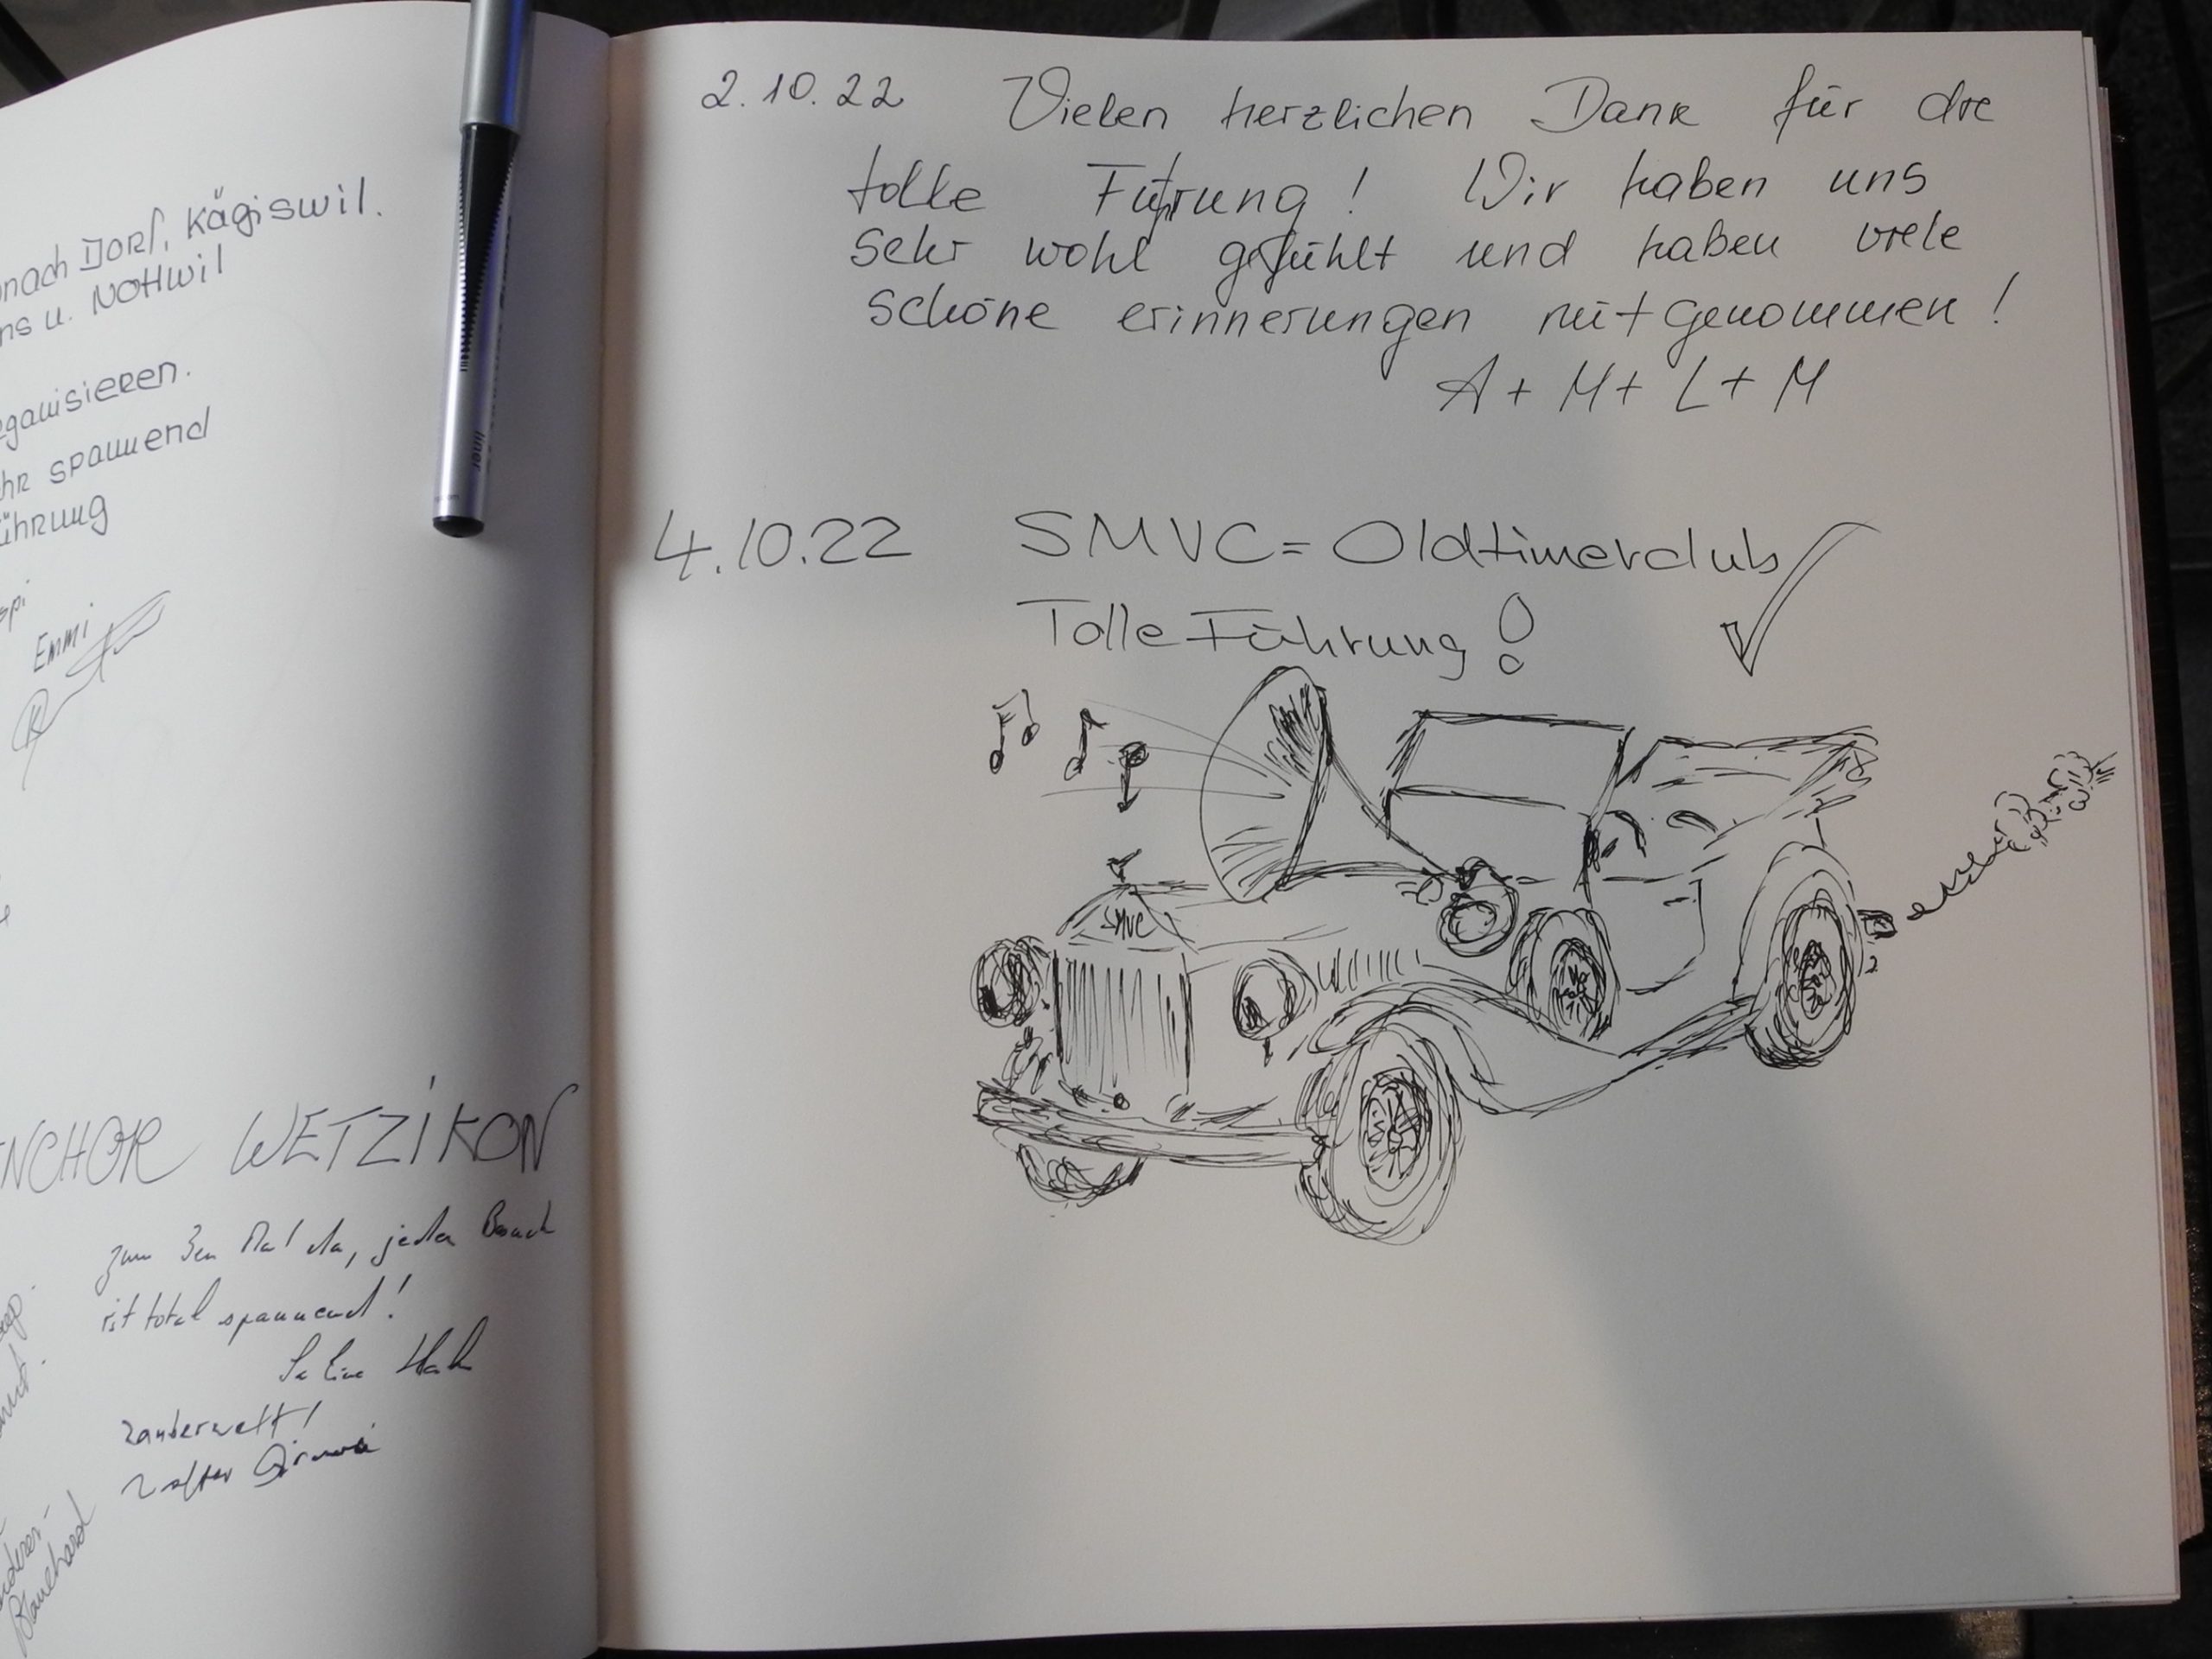 nach Dorf, Kägiswil.
ns u. Nottwil
ganisieren.
hr spannend
ührung
spi
Emmi
NCHOR WETZIKON
zum 3en Mal da, jeder Besuch
ist total spannend!
Zauberwelt!
Walter
Blanchard
liner
2.10.22 Vielen herzlichen Dank für die
tolle Führung! Wir haben uns
sehr wohl gefühlt und haben viele
schöne erinnerungen mitgenommen!
A + M + L + M
4.10.22 SMVC = Oldtimerclub
Tolle Führung!
SMVC